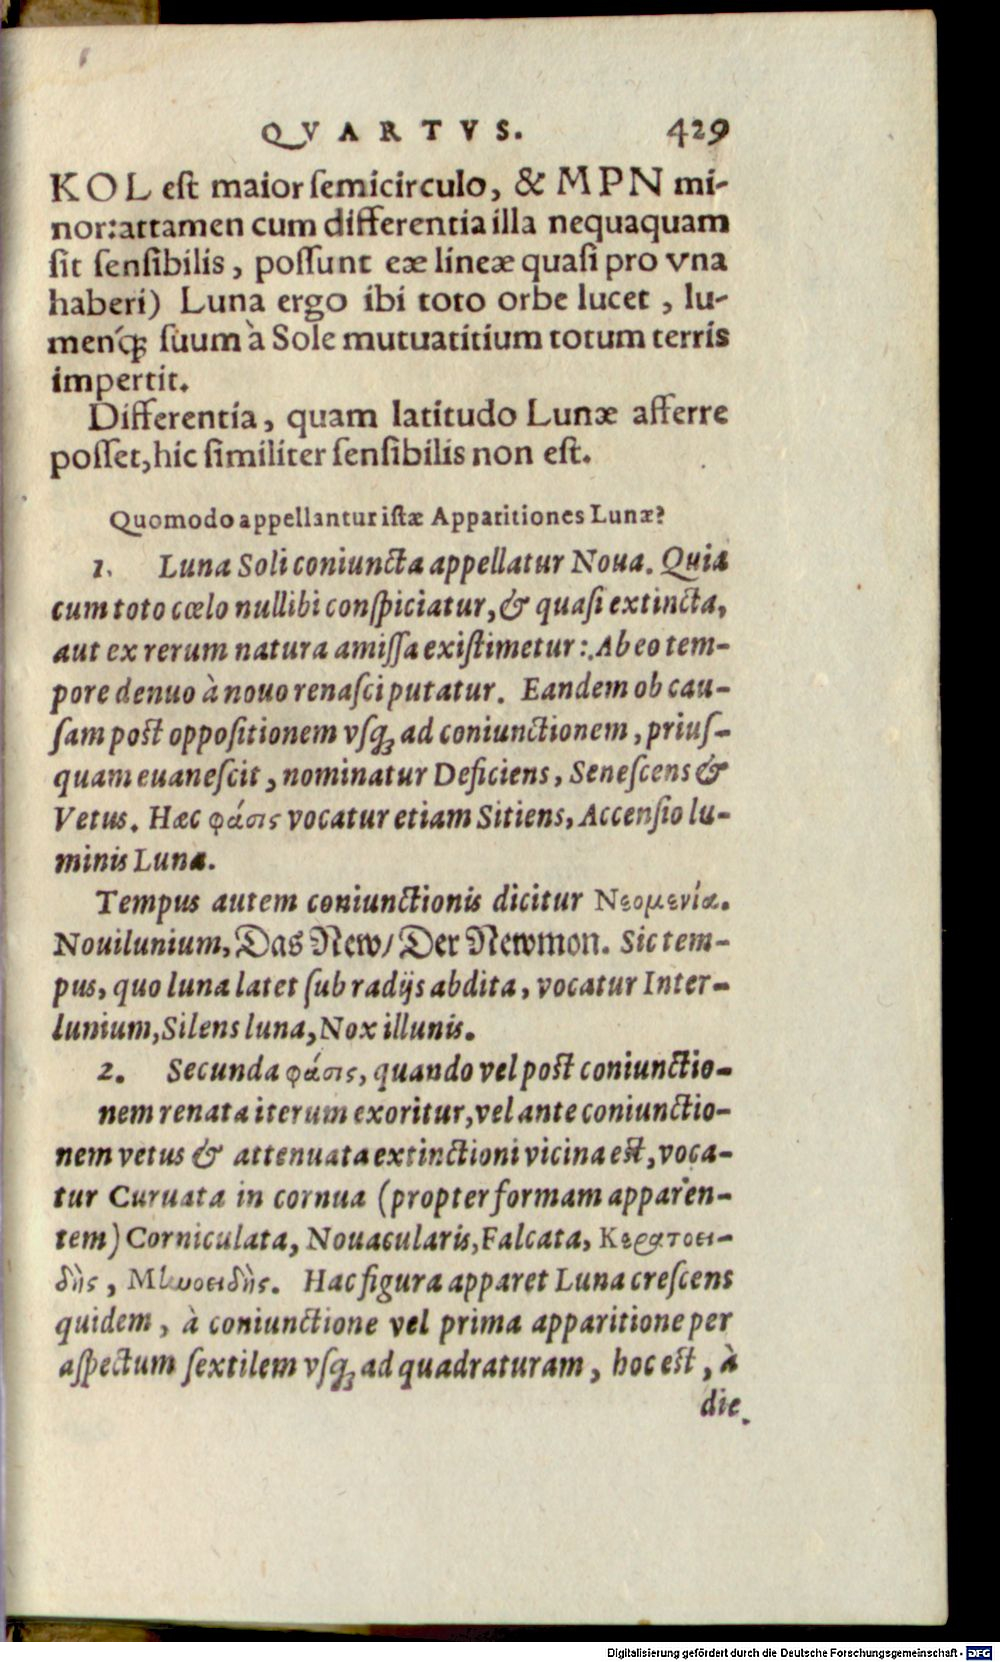 QVARTVS. 429
KOL est maior semicirculo, & MPN mi-
nor: attamen cum differentia illa nequaquam
sit sensibilis, possunt eæ lineæ quasi pro vna
haberi) Luna ergo ibi toto orbe lucet, lu-
menq́; suum à Sole mutuatitium totum terris
impertit.
Differentia, quam latitudo Lunæ afferre
posset, hic similiter sensibilis non est.
Quomodo appellantur istæ Apparitiones Lunæ?
1. Luna Soli coniuncta appellatur Noua. Quia
cum toto cœlo nullibi conspiciatur, & quasi extincta,
aut ex rerum natura amissa existimetur: Ab eo tem-
pore denuo à nouo renasci putatur. Eandem ob cau-
sam post oppositionem vsq; ad coniunctionem, prius-
quam euanescit, nominatur Deficiens, Senescens &
Vetus. Hæc φάσις vocatur etiam Sitiens, Accensio lu-
minis Lunæ.
Tempus autem coniunctionis dicitur Νεομενία.
Nouilunium, Das New/ Der Newmon. Sic tem-
pus, quo luna latet sub radijs abdita, vocatur Inter-
lunium, Silens luna, Nox illunis.
2. Secunda φάσις, quando vel post coniunctio-
nem renata iterum exoritur, vel ante coniunctio-
nem vetus & attenuata extinctioni vicina est, voca-
tur Curuata in cornua (propter formam apparen-
tem) Corniculata, Nouacularis, Falcata, Κερατοει-
δὴς, Μηνοειδὴς. Hac figura apparet Luna crescens
quidem, à coniunctione vel prima apparitione per
aspectum sextilem vsq; ad quadraturam, hoc est, à
die
Digitalisierung gefördert durch die Deutsche Forschungsgemeinschaft - DFG